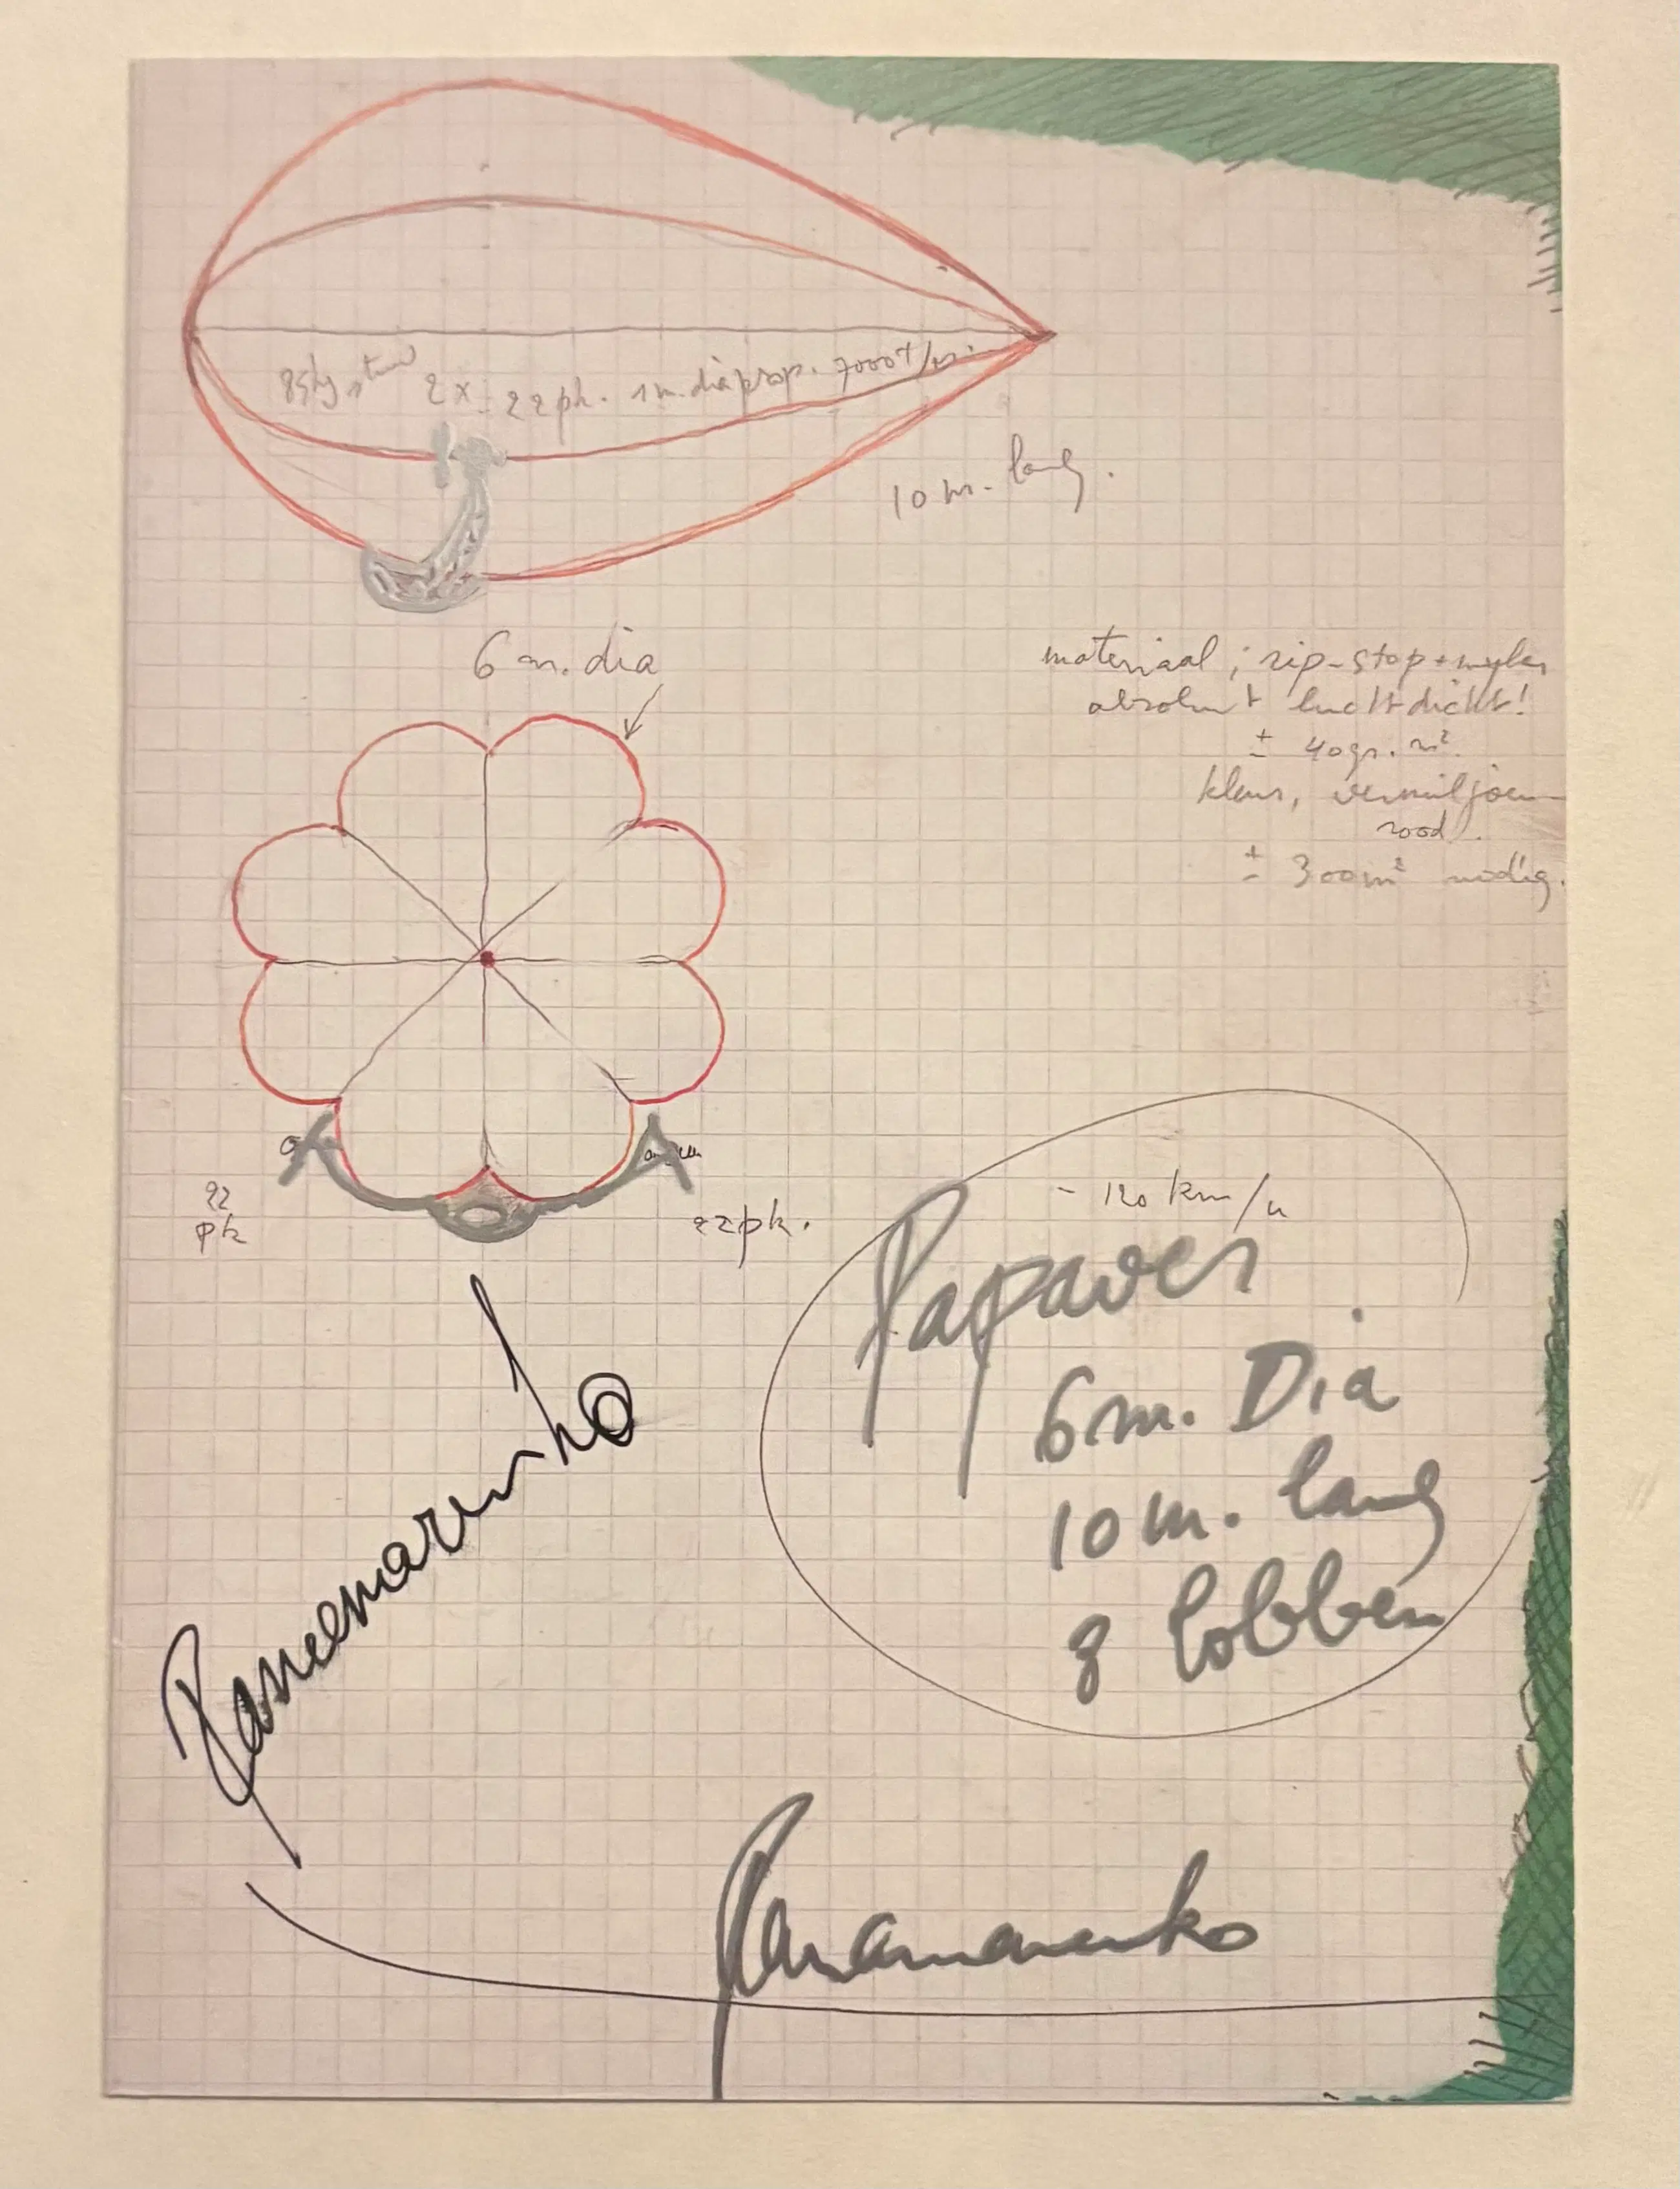 85kg stuw 2x 22pk. 1m. dia prop. 7000 t/m.
10 m. lang.
6 m. dia
materiaal ; rip-stop + mylar
absoluut luchtdicht!
± 40gr. m².
kleur, vermiljoen-
rood.
± 300m² nodig.
22
pk
22pk.
- 120 km/u
Papaver
6m. Dia
10 m. lang
8 lobben
Panamarenko
Panamarenko